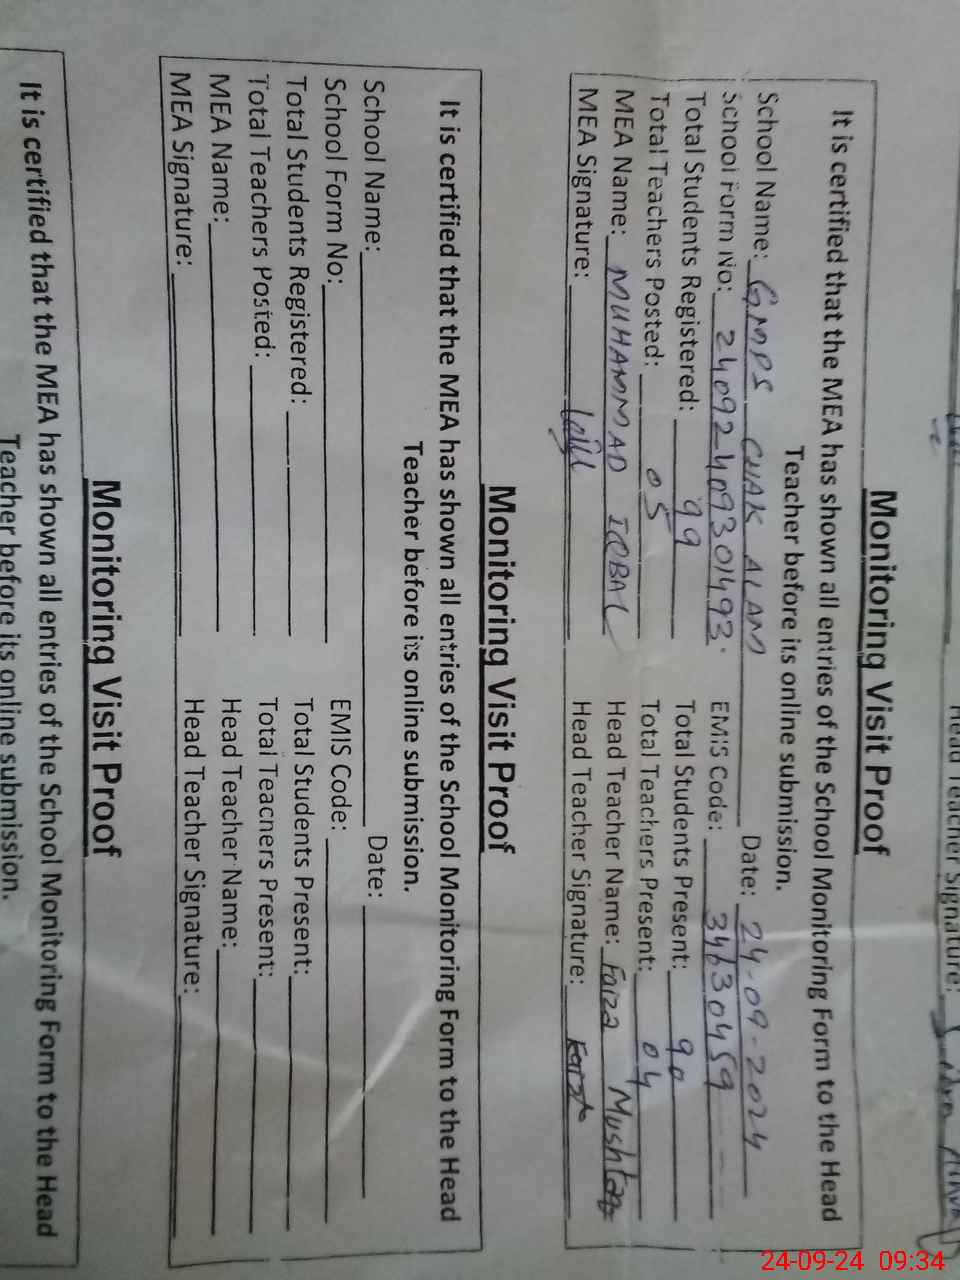 Head Teacher Signature:
Monitoring Visit Proof
It is certified that the MEA has shown all entries of the School Monitoring Form to the Head
Teacher before its online submission.
School Name: GMPS CHAK ALAM Date: 24-09-2024
School Form No: 24092409301493. EMIS Code: 34630459
Total Students Registered: 99 Total Students Present: 90
Total Teachers Posted: 05 Total Teachers Present: 04
MEA Name: MUHAMMAD IQBAL Head Teacher Name: Faiza Mushtaq
MEA Signature: Head Teacher Signature:
Monitoring Visit Proof
It is certified that the MEA has shown all entries of the School Monitoring Form to the Head
Teacher before its online submission.
School Name: Date:
School Form No: EMIS Code:
Total Students Registered: Total Students Present:
Total Teachers Posted: Total Teachers Present:
MEA Name: Head Teacher Name:
MEA Signature: Head Teacher Signature:
Monitoring Visit Proof
It is certified that the MEA has shown all entries of the School Monitoring Form to the Head
Teacher before its online submission.
24-09-24 09:34